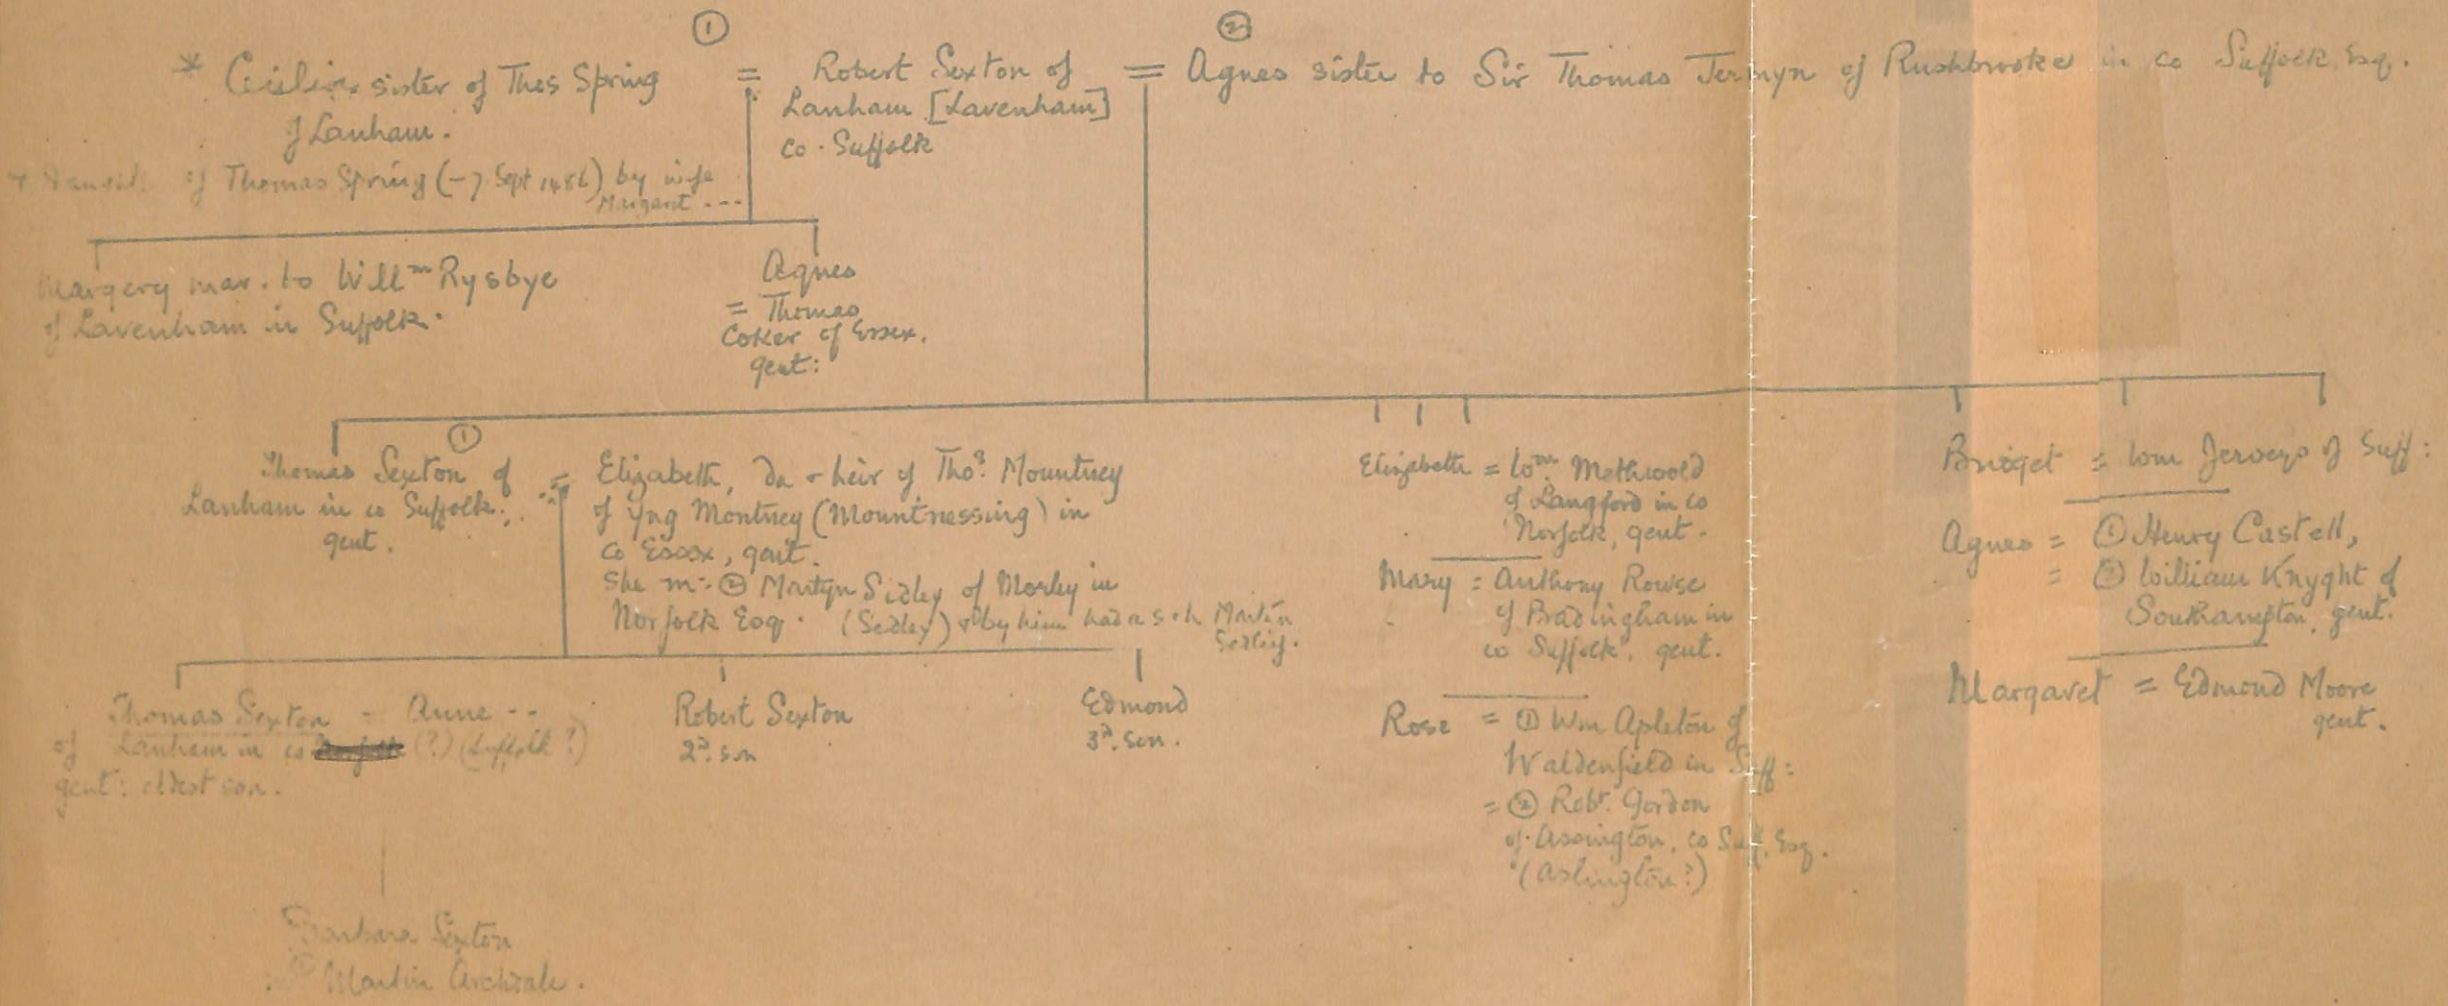 ①
②
* Cicilia sister of Thos Spring
of Lanham.
=
Robert Sexton of
Lanham [Lavenham]
co. Suffolk
=
Agnes sister to Sir Thomas Jermyn of Rushbrooke in co Suffolk, Esq.
of Thomas Spring (- 7 Sept 1486) by wife
Margaret ---
Margery mar. to Willm Rysbye
of Lavenham in Suffolk.
Agnes
= Thomas
Coker of Essex.
gent:
①
Thomas Sexton of
Lanham in co Suffolk.
gent.
=
Elizabeth, da & heir of Thos. Mountney
of Yng Montney (Mountnessing) in
co Essex, gent.
She m: ② Martyn Sidley of Morley in
Norfolk Esq. (Sedley) & by him had a s & h Martin
Sedley.
Elizabeth = Wm. Methwold
of Langford in co
Norfolk, gent.
Mary = Anthony Rowse
of Badingham in
co Suffolk, gent.
Rose = ① Wm Apleton of
Waldenfield in Suff:
= ② Robt. Gordon
of Assington, co Suff, Esq.
(Aslington?)
Bridget = Wm Jerveys of Suff:
Agnes = ① Henry Castell,
= ② William Knyght of
Southampton, gent.
Margaret = Edmond Moore
gent.
Thomas Sexton = Anne --
of Lanham in co (?) (Suffolk?)
gent: eldest son.
Robert Sexton
2d. son
Edmond
3d. son.
Barbara Sexton
Martin Archdale.